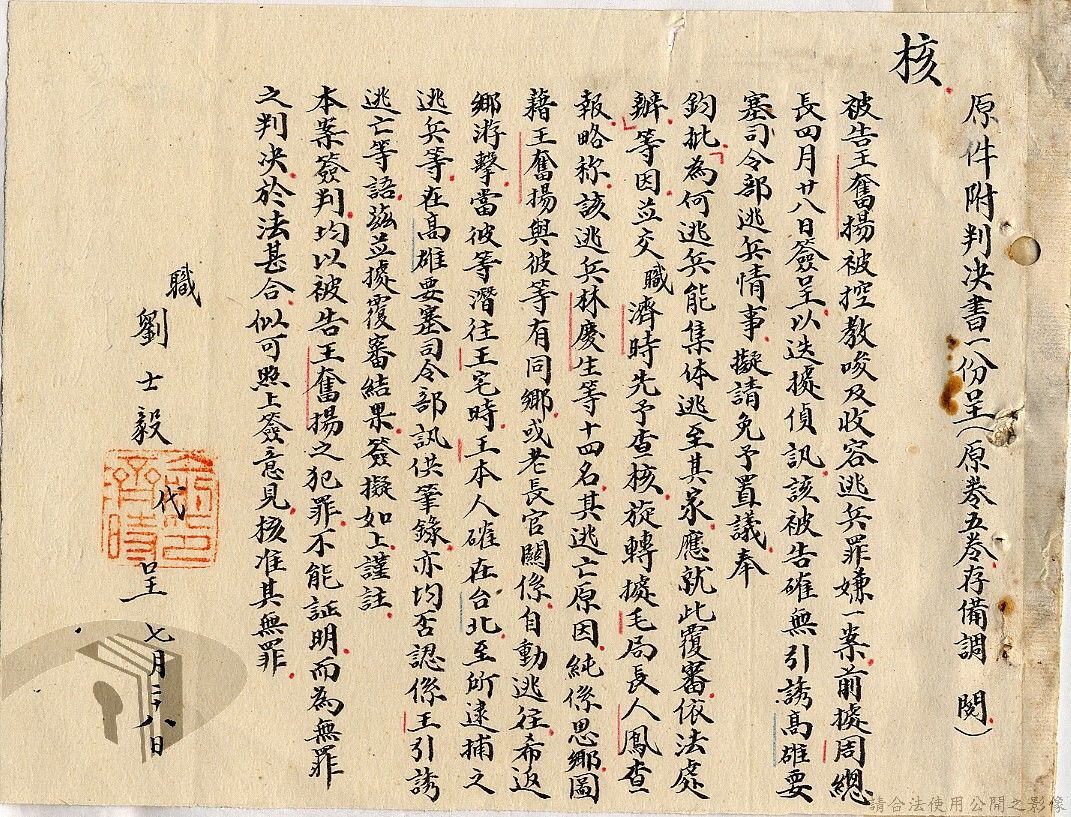 核
原件附判决書一份呈(原卷五卷存備調閱)
被告王奮揚被控教唆及收容逃兵罪嫌一案前據周總
長四月廿八日簽呈以迭據偵訊該被告確無引誘高雄要
塞司令部逃兵情事擬請免予置議奉
鈞批「為何逃兵能集体逃至其家應就此覆審依法處
辦」等因並交職濟時先予查核旋轉據毛局長人鳳查
報略称該逃兵林慶生等十四名其逃亡原因純係思鄉圖
藉王奮揚與彼等有同鄉或老長官關係自動逃往希返
鄉游擊當彼等潛往王宅時王本人確在台北至所逮捕之
逃兵等在高雄要塞司令部訊供筆錄亦均否認係王引誘
逃亡等語茲並據覆審結果簽擬如上謹註
本案簽判均以被告王奮揚之犯罪不能証明而為無罪
之判决於法甚合似可照上簽意見核准其無罪
職劉士毅代呈 七月二十八日
俞濟時印
請合法使用公開之影像